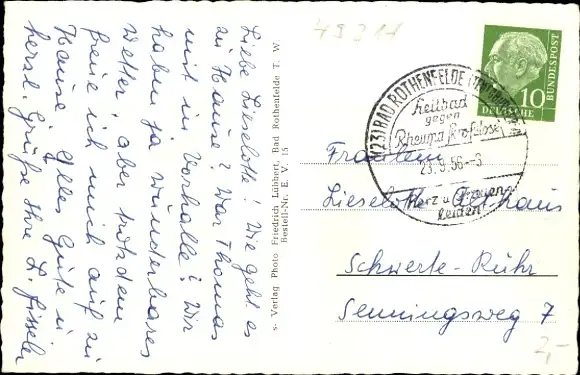 Liebe Lieselotte! Wie geht es
zu Hause? War Thomas
mit in Vorhalle? Wir
haben ja wunderbares
Wetter, aber trotzdem
freue ich mich auf zu
Hause. Alles Gute u.
herzl. Grüße Ihre L.
s. Verlag Photo Friedrich Lübbert, Bad Rothenfelde T. W.
Bestell-Nr. E. V. 15
4931
(23) BAD ROTHENFELDE
Heilbad
gegen
Rheuma
23.9.56.-8
Herz u. Frauen-
leiden
10
DEUTSCHE
BUNDESPOST
Fräulein
Lieselotte
Schwerte-Ruhr
Senningsweg 7
2,-